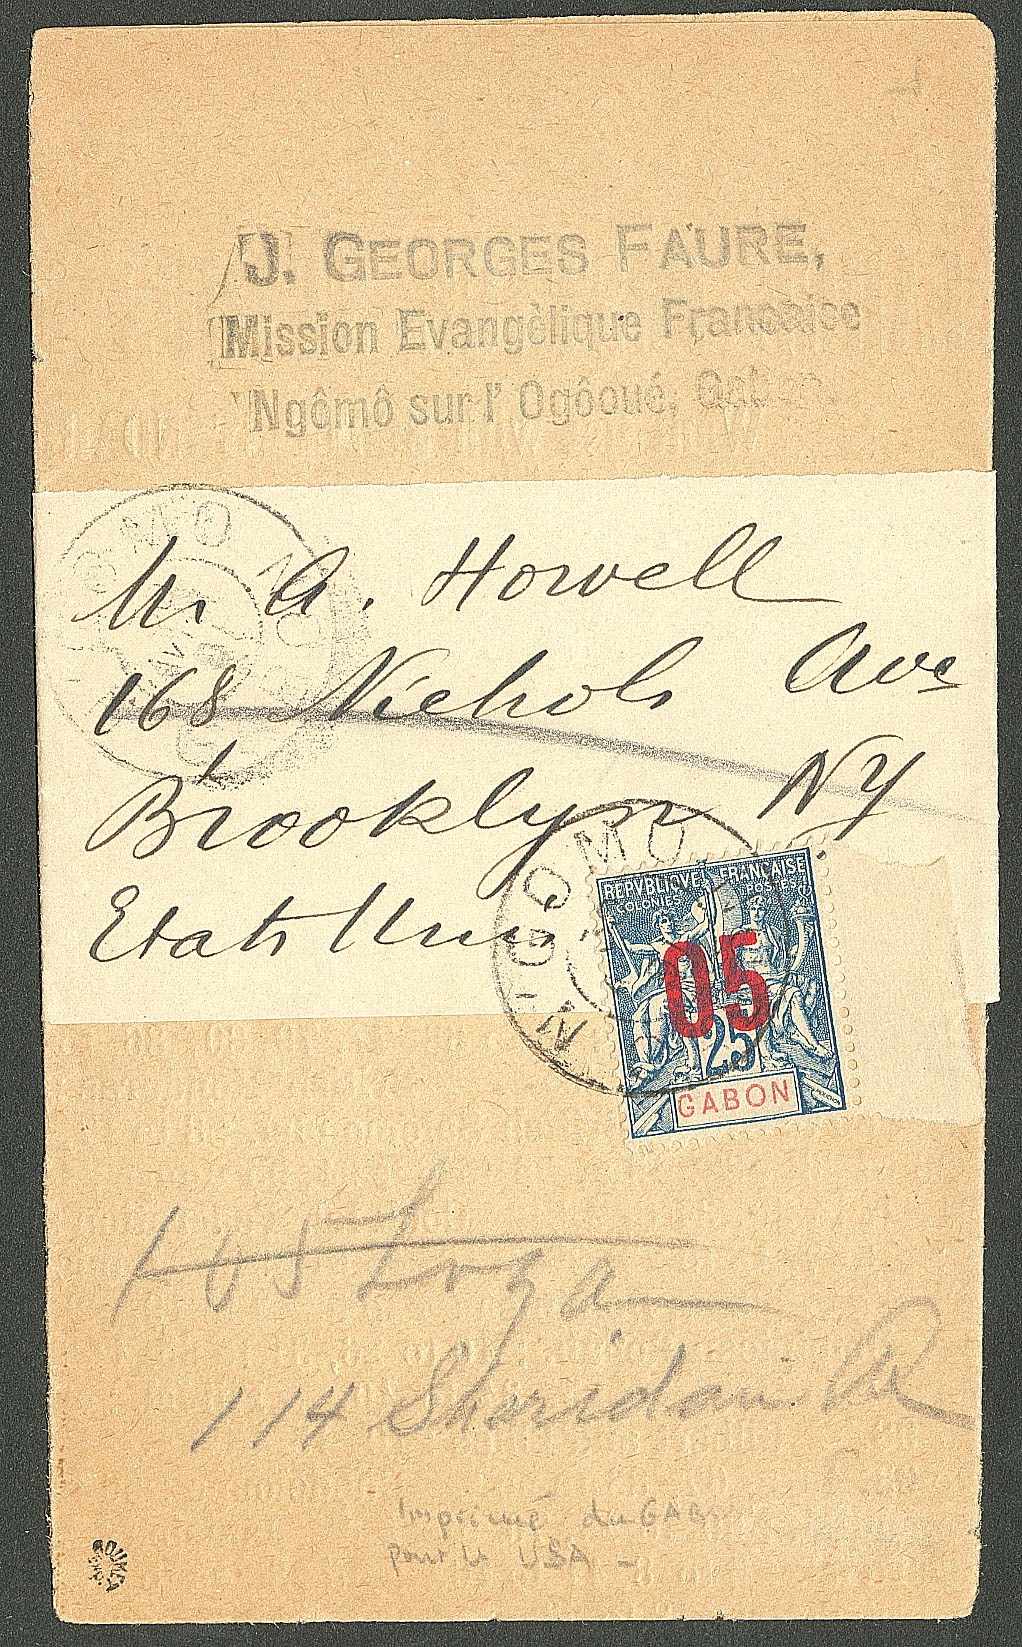 J. GEORGES FAURE,
Mission Evangèlique Francaise
Ngômô sur l' Ogôoué,
N'GOMO
Mr G. Howell
168 Nichols Ave
Brooklyn NY
Etats Unis
N'GOMO
REPVBLIQVE FRANÇAISE
COLONIES POSTES
05
25
GABON
105 Logan
114 Sheridan
Imprimé du GABON
pour les USA -
ROUMET